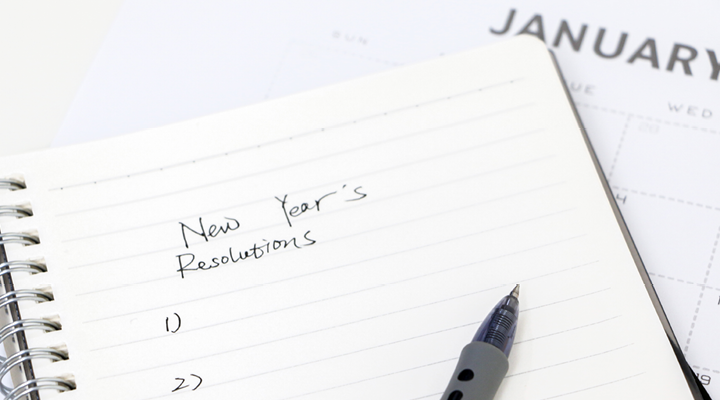 JANUARY
SUN
UE
WED
New Year's
Resolutions
1)
2)
4
19